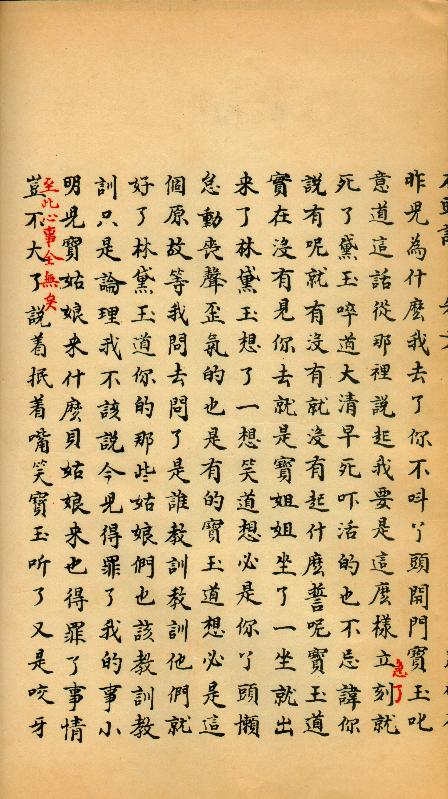 昨兒為什麽我去了你不呌丫頭開門寶玉叱
意道這話從那裡說起我要是這麽樣立刻就
急了
死了黛玉啐道大清早死吓活的也不忌諱你
說有呢就有沒有就沒有起什麽誓呢寶玉道
實在沒有見你去就是寶姐姐坐了一坐就出
来了林黛玉想了一想笑道想必是你丫頭懶
怠動喪聲歪氣的也是有的寶玉道想必是這
個原故等我問去問了是誰教訓教訓他們就
好了林黛玉道你的那些姑娘們也該教訓教
訓只是論理我不該說今兒得罪了我的事小
明兒寶姑娘来什麽貝姑娘来也得罪了事情
至此心事全無矣
豈不大了說着抿着嘴笑寶玉听了又是咬牙